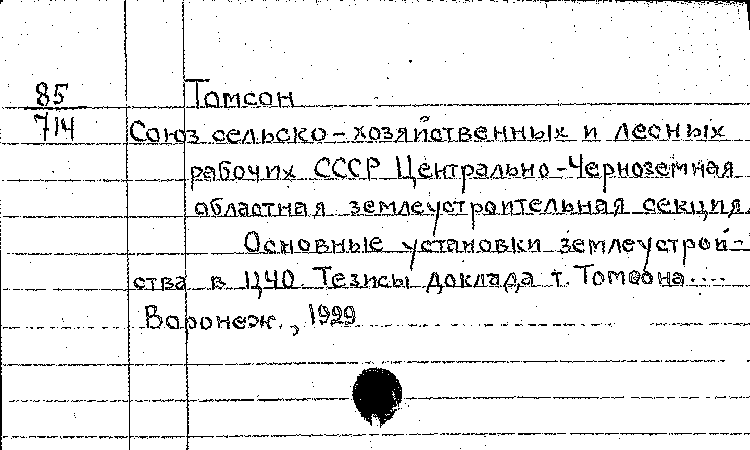 85 Томсон
714 Союз сельско-хозяйственных и лесных
рабочих СССР Центрально-Черноземная
областная землеустроительная секция.
Основные установки землеустрой-
ства в ЦЧО. Тезисы доклада т. Томсона....
Воронеж., 1929